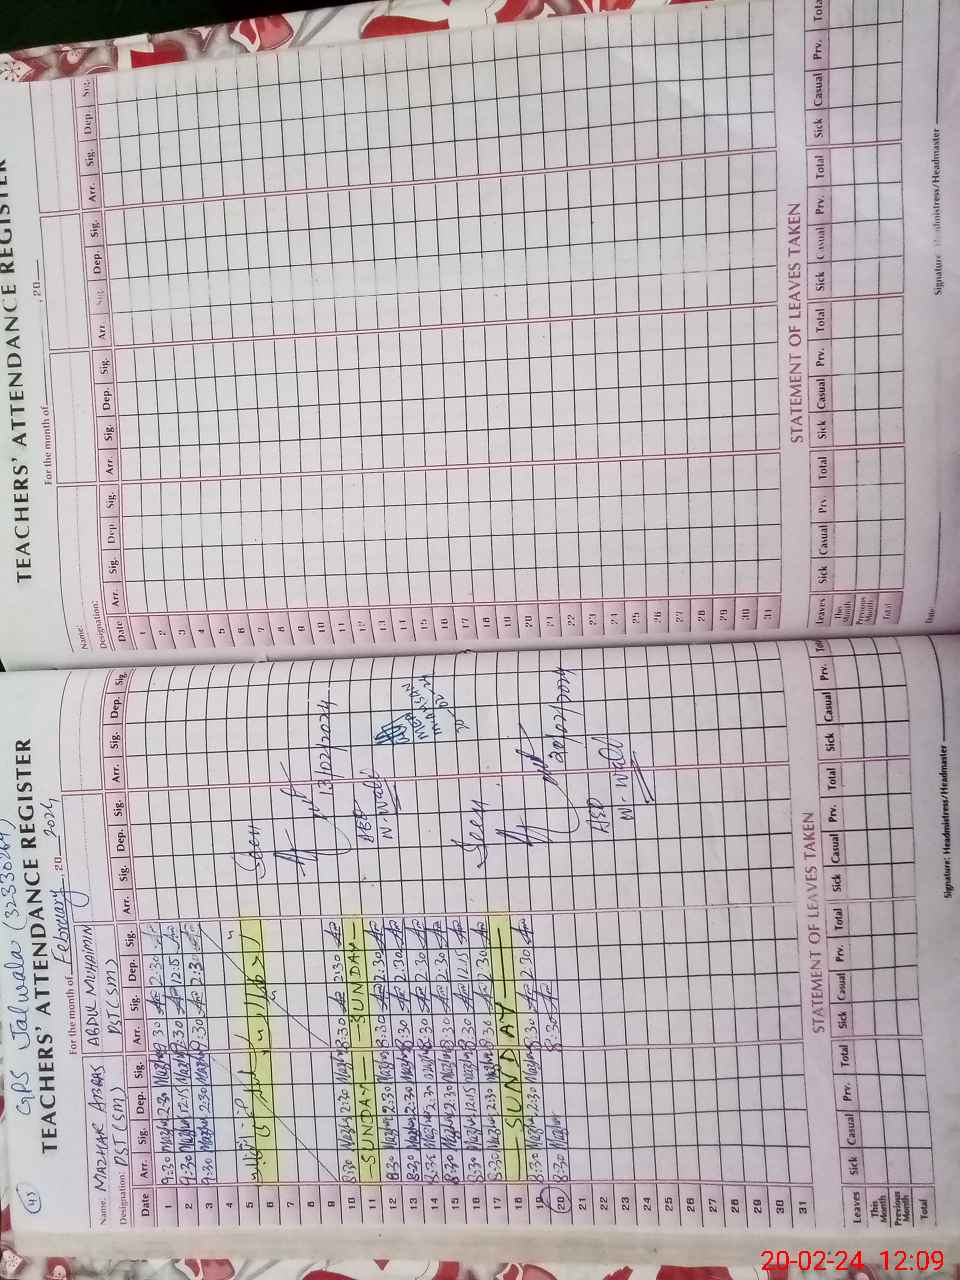 43
GPS Jalwala (32330264)
TEACHERS' ATTENDANCE REGISTER
For the month of February, 2024
Name: MAZHAR ABBAS ABDUL MUHAIMIN
Designation: PST (SM) PST (SM)
Date Arr. Sig. Dep. Sig. Arr. Sig. Dep. Sig. Arr. Sig. Dep. Sig. Arr. Sig. Dep. Sig.
1 9:30 Mazhar 2:30 Mazhar 9:30 2:30
2 9:30 Mazhar 12:15 Mazhar 9:30 12:15
3 9:30 Mazhar 2:30 Mazhar 9:30 2:30
4
5
6
7
8
9
10 8:30 Mazhar 2:30 Mazhar 8:30 2:30
11 — SUNDAY — — SUNDAY —
12 8:30 Mazhar 2:30 Mazhar 8:30 2:30
13 8:30 Mazhar 2:30 Mazhar 8:30 2:30
14 8:30 Mazhar 2:30 Mazhar 8:30 2:30
15 8:30 Mazhar 2:30 Mazhar 8:30 2:30
16 8:30 Mazhar 12:15 Mazhar 8:30 12:15
17 8:30 Mazhar 2:30 Mazhar 8:30 2:30
18 — SUNDAY —
19 8:30 Mazhar 2:30 Mazhar 8:30 2:30
20 8:30 Mazhar 8:30
21
22
23
24
25
26
27
28
29
30
31
Seen
13/02/2024
N. Wall
Seen
20/02/2024
N. Wall
STATEMENT OF LEAVES TAKEN
Leaves Sick Casual Prv. Total Sick Casual Prv. Total Sick Casual Prv. Total Sick Casual Prv. Total
This Month
Previous Month
Total
Signature: Headmistress/Headmaster
TEACHERS' ATTENDANCE REGISTER
For the month of , 20
Name:
Designation:
Date Arr. Sig. Dep. Sig. Arr. Sig. Dep. Sig. Arr. Sig. Dep. Sig. Arr. Sig. Dep. Sig.
1
2
3
4
5
6
7
8
9
10
11
12
13
14
15
16
17
18
19
20
21
22
23
24
25
26
27
28
29
30
31
STATEMENT OF LEAVES TAKEN
Leaves Sick Casual Prv. Total Sick Casual Prv. Total Sick Casual Prv. Total Sick Casual Prv. Total
This Month
Previous Month
Total
Date:
Signature: Headmistress/Headmaster
20-02-24 12:09